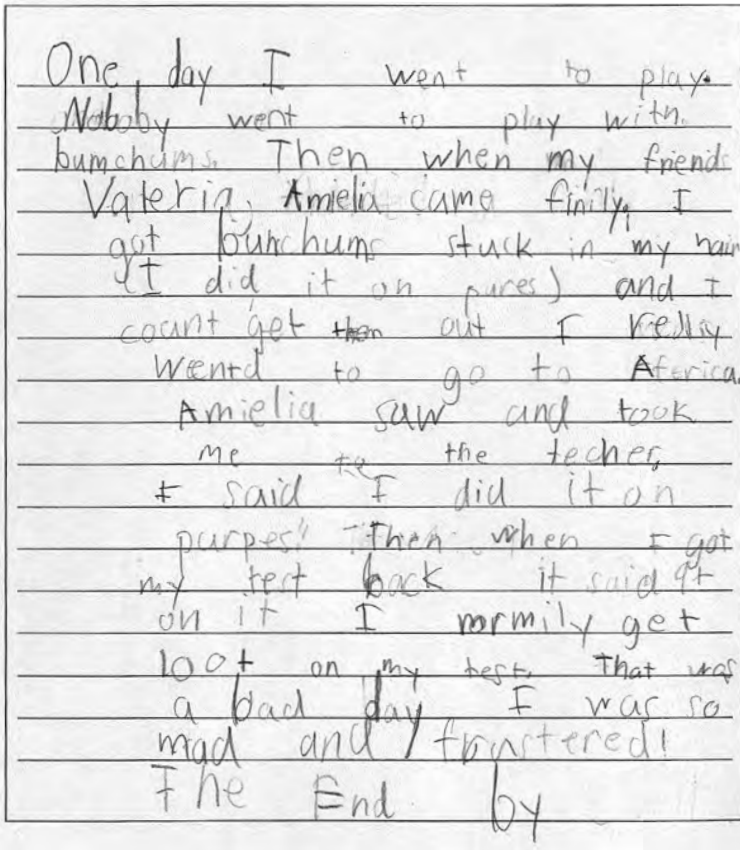 One day I went to play.
Noboby went to play with
bumchums. Then when my friends
Valeria, Amielia came finily, I
got bunchums stuck in my hair
(I did it on pures) and I
count get them out I relly
wentd to go to Aferica.
Amielia saw and took
me to the techer,
I said I did it on
purpes!" Then when I got
my test back it said 9t
on it I normily get
100t on my test. That was
a bad day I was so
mad and frustered!
The End by